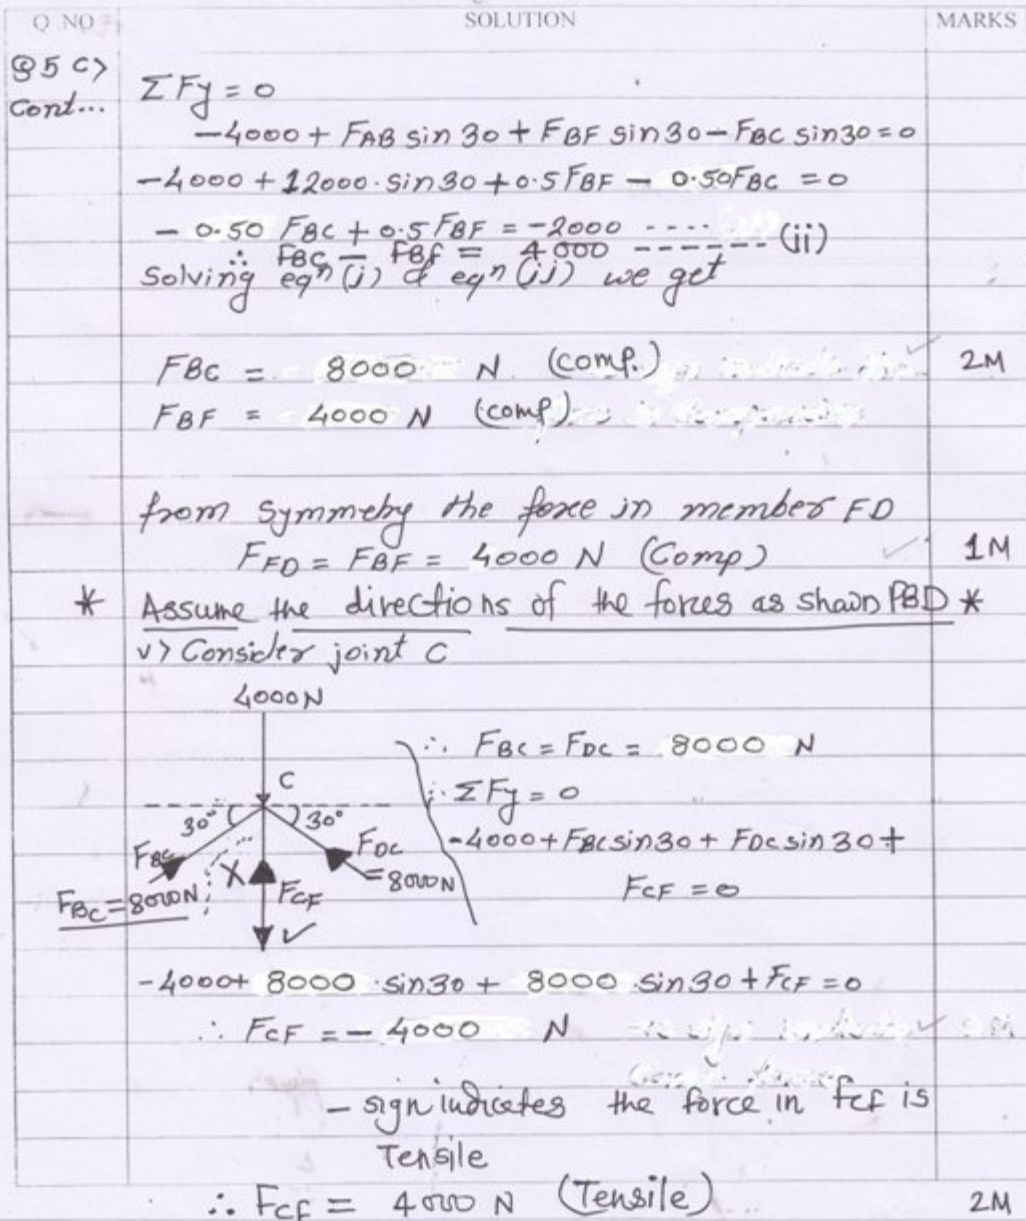 Q NO
SOLUTION
MARKS
Q5 C>
Cont...
ΣFy = 0
-4000 + FAB sin 30 + FBF sin 30 - FBC sin 30 = 0
-4000 + 12000 · sin 30 + 0.5 FBF - 0.50 FBC = 0
- 0.50 FBC + 0.5 FBF = -2000 ----
∴ FBC - FBF = 4000 ------- (ii)
Solving eqn (i) & eqn (ii) we get
FBC = 8000 N (comp.) 2M
FBF = 4000 N (comp)
from Symmetry the force in member FD
FFD = FBF = 4000 N (Comp) 1M
* Assume the directions of the forces as shown FBD *
v> Consider joint C
4000N
C
30° 30°
FBC
FBC = 8000N
X
FCF
✓
FDC
= 8000N
∴ FBC = FDC = 8000 N
∴ ΣFy = 0
-4000 + FBC sin 30 + FDC sin 30 +
FCF = 0
-4000 + 8000 · sin 30 + 8000 · sin 30 + FCF = 0
∴ FCF = - 4000 N
- sign indicates the force in FCF is
Tensile
∴ FCF = 4000 N (Tensile) 2M